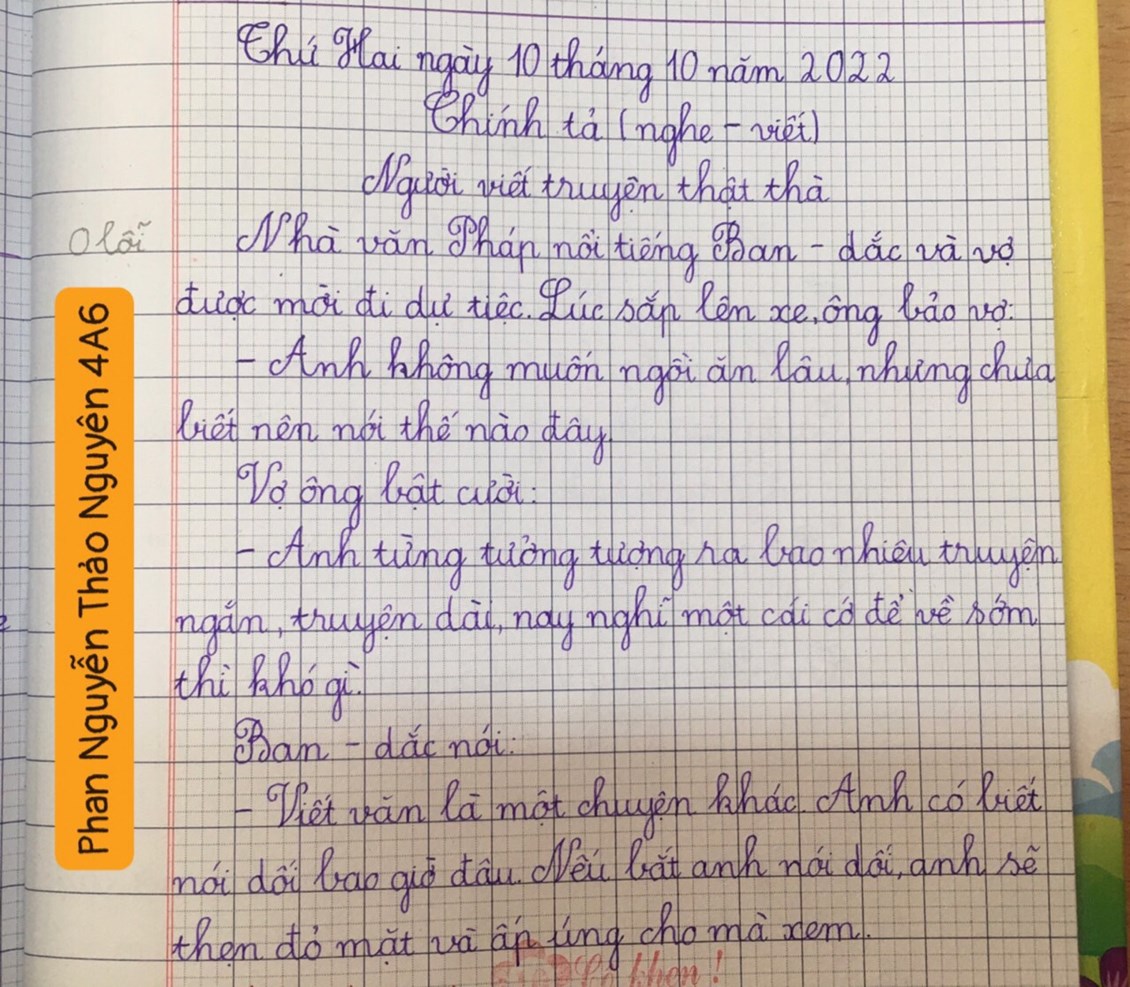 Thứ Hai ngày 10 tháng 10 năm 2022
Chính tả (nghe - viết)
Người viết truyện thật thà
0 lỗi
Nhà văn Pháp nổi tiếng Ban - dắc và vợ
được mời đi dự tiệc. Lúc sắp lên xe, ông bảo vợ:
- Anh không muốn ngồi ăn lâu, nhưng chưa
biết nên nói thế nào đây.
Vợ ông bật cười:
- Anh từng tưởng tượng ra bao nhiêu truyện
ngắn, truyện dài, nay nghĩ một cái cớ để về sớm
thì khó gì.
Ban - dắc nói:
- Viết văn là một chuyện khác. Anh có biết
nói dối bao giờ đâu. Nếu bắt anh nói dối, anh sẽ
thẹn đỏ mặt và ấp úng cho mà xem.
khen!
Phan Nguyễn Thảo Nguyên 4A6